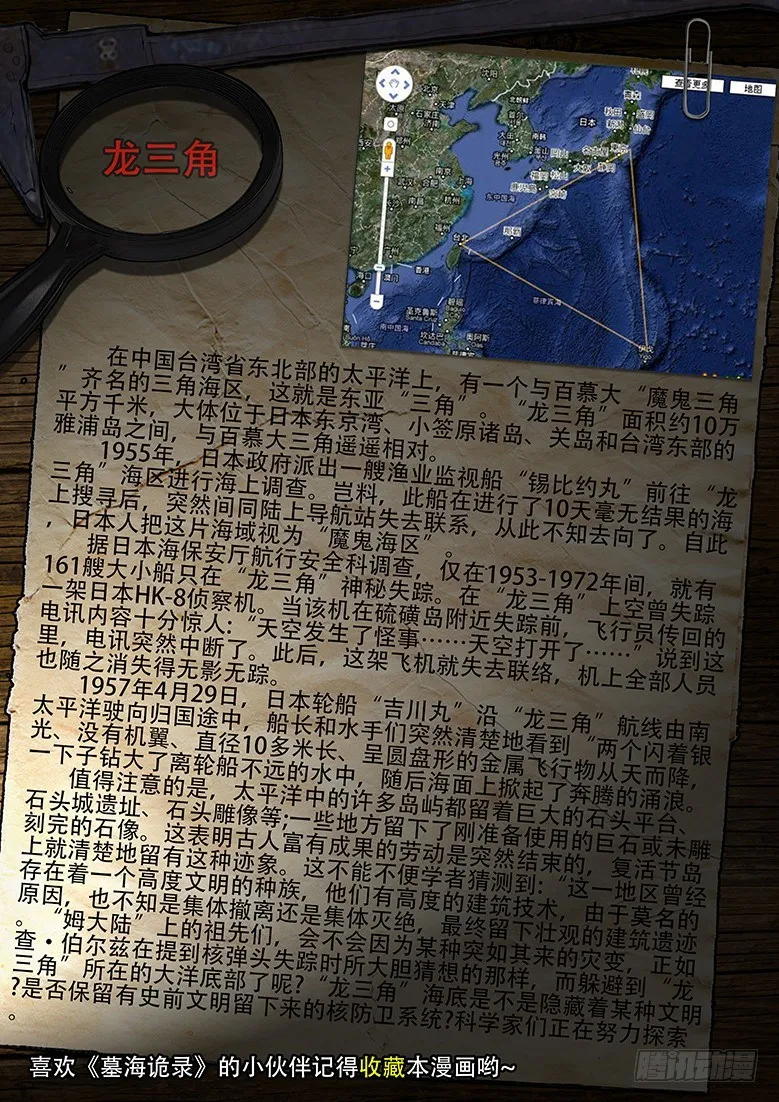 龙三角
查看更多
地图
沈阳
北京
天津
石家庄
济南
太原
北朝鲜
大田
南韩
釜山
光州
日本
青森
秋田
盛冈
新潟
仙台
东京
名古屋
大阪
静冈
冈山
福冈
松山
宫崎
鹿儿岛
东中国海
西安
郑州
南京
合肥
上海
武汉
杭州
南昌
福州
台北
那霸
广州
香港
澳门
海口
菲律宾海
碧瑶
Baguio City
圣克鲁斯
Santa Cruz
南中国海
坎达巴
Candaba
奥阿斯
Oas
在中国台湾省东北部的太平洋上，有一个与百慕大“魔鬼三角
”齐名的三角海区，这就是东亚“三角”。“龙三角”面积约10万
平方千米，大体位于日本东京湾、小签原诸岛、关岛和台湾东部的
雅浦岛之间，与百慕大三角遥遥相对。
1955年，日本政府派出一艘渔业监视船“锡比约丸”前往“龙
三角”海区进行海上调查。岂料，此船在进行了10天毫无结果的海
上搜寻后，突然间同陆上导航站失去联系，从此不知去向了。自此
，日本人把这片海域视为“魔鬼海区”。
据日本海保安厅航行安全科调查，仅在1953-1972年间，就有
161艘大小船只在“龙三角”神秘失踪。在“龙三角”上空曾失踪
一架日本HK-8侦察机。当该机在硫磺岛附近失踪前，飞行员传回的
电讯内容十分惊人:“天空发生了怪事……天空打开了……”说到这
里，电讯突然中断了。此后，这架飞机就失去联络，机上全部人员
也随之消失得无影无踪。
1957年4月29日，日本轮船“吉川丸”沿“龙三角”航线由南
太平洋驶向归国途中，船长和水手们突然清楚地看到“两个闪着银
光、没有机翼、直径10多米长、呈圆盘形的金属飞行物从天而降，
一下子钻大了离轮船不远的水中，随后海面上掀起了奔腾的涌浪。
值得注意的是，太平洋中的许多岛屿都留着巨大的石头平台、
石头城遗址、石头雕像等;一些地方留下了刚准备使用的巨石或未雕
刻完的石像。这表明古人富有成果的劳动是突然结束的，复活节岛
上就清楚地留有这种迹象。这不能不便学者猜测到:“这一地区曾经
存在着一个高度文明的种族，他们有高度的建筑技术，由于莫名的
原因，也不知是集体撤离还是集体灭绝，最终留下壮观的建筑遗迹
。“姆大陆”上的祖先们，会不会因为某种突如其来的灾变，正如
查·伯尔兹在提到核弹头失踪时所大胆猜想的那样，而躲避到“龙
三角”所在的大洋底部了呢?“龙三角”海底是不是隐藏着某种文明
?是否保留有史前文明留下来的核防卫系统?科学家们正在努力探索
。
喜欢《墓海诡录》的小伙伴记得收藏本漫画哟~
腾讯动漫